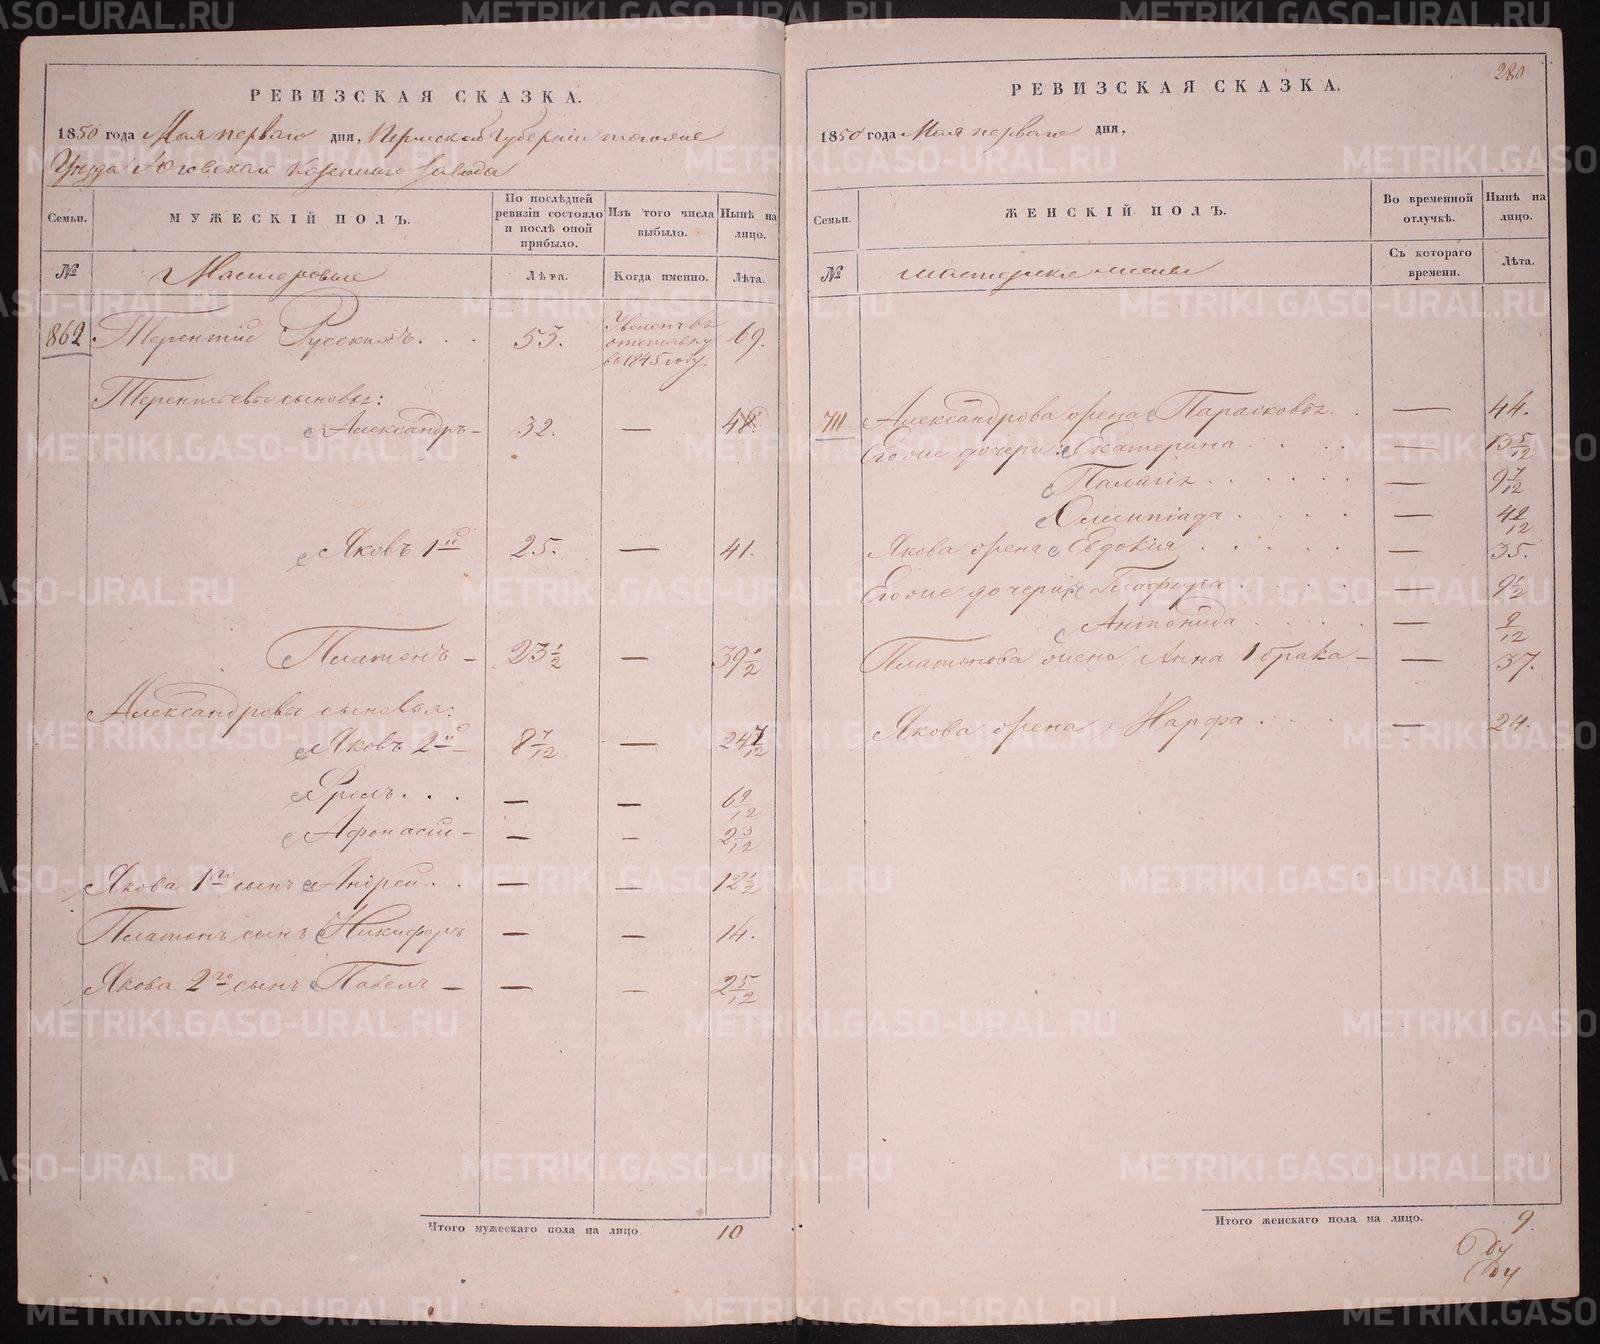 РЕВИЗСКАЯ СКАЗКА.
1850 года Мая перваго дня, Пермской Губерніи тогоже
Уезда Юговскаго Казеннаго Завода
Семьи.
МУЖЕСКІЙ ПОЛЪ.
По послѣдней ревизіи состояло и послѣ оной прибыло.
Изъ того числа выбыло.
Нынѣ на лицо.
№
Мастеровые
Лѣта.
Когда именно.
Лѣта.
862
Терентий Русскихъ. . .
53.
Уволенъ въ отставку въ 1845 году.
69.
Терентьевы сыновья:
Александръ –
32.
—
48.
Яковъ 1й
25.
—
41.
Платонъ –
23 1/2
—
39 1/2
Александровы сыновья:
Яковъ 2й –
8 7/12
—
24 7/12
Фролъ. . .
—
—
6 9/12
Афонасій –
—
—
2 3/12
Якова 1го сынъ Андрей. .
—
—
12 1/2
Платона сынъ Никифоръ
—
—
14.
Якова 2го сынъ Павелъ –
—
—
2 5/12
Итого мужескаго пола на лицо
10
280
РЕВИЗСКАЯ СКАЗКА.
1850 года Мая перваго дня,
Семьи.
ЖЕНСКІЙ ПОЛЪ.
Во временной отлучкѣ.
Нынѣ на лицо.
№
мастерскіе жены
Съ котораго времени.
Лѣта.
711
Александрова жена Парасковья. .
—
44.
Егоже дочери: Екатерина
—
13 5/12
Палагія
—
9 7/12
Олимпіада
—
Якова жена Евдокія
—
35.
Егоже дочери: Глафира
—
9 1/2
Антонида
—
9/12
Платонова жена Анна 1 брака –
—
37.
Якова жена Марфа
—
24.
Итого женскаго пола на лицо.
9.
METRIKI.GASO-URAL.RU